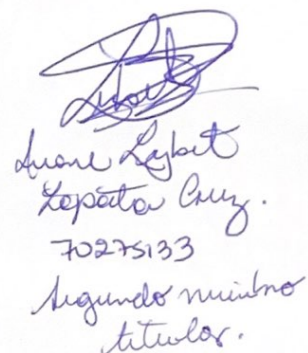 Lisbet
Luane Lisbet
Zapata Cruz.
70275133
Segundo miembro
titular.